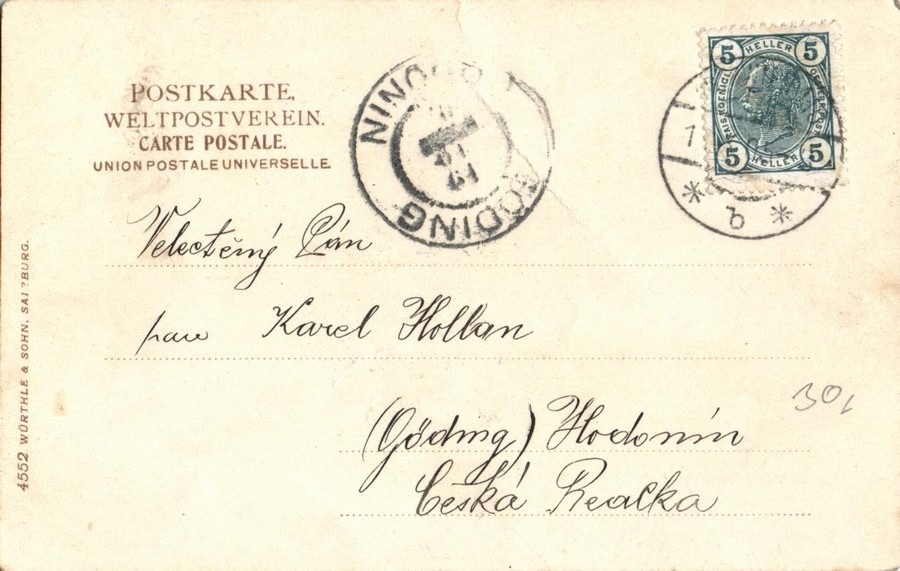 POSTKARTE.
WELTPOSTVEREIN.
CARTE POSTALE.
UNION POSTALE UNIVERSELLE.
5 HELLER 5
5 HELLER 5
GÖDING
b
Velectěný Pán
pan Karel Hollan
(Göding) Hodonín
Česká Realka
30,
4552 WÜRTHLE & SOHN, SALZBURG.